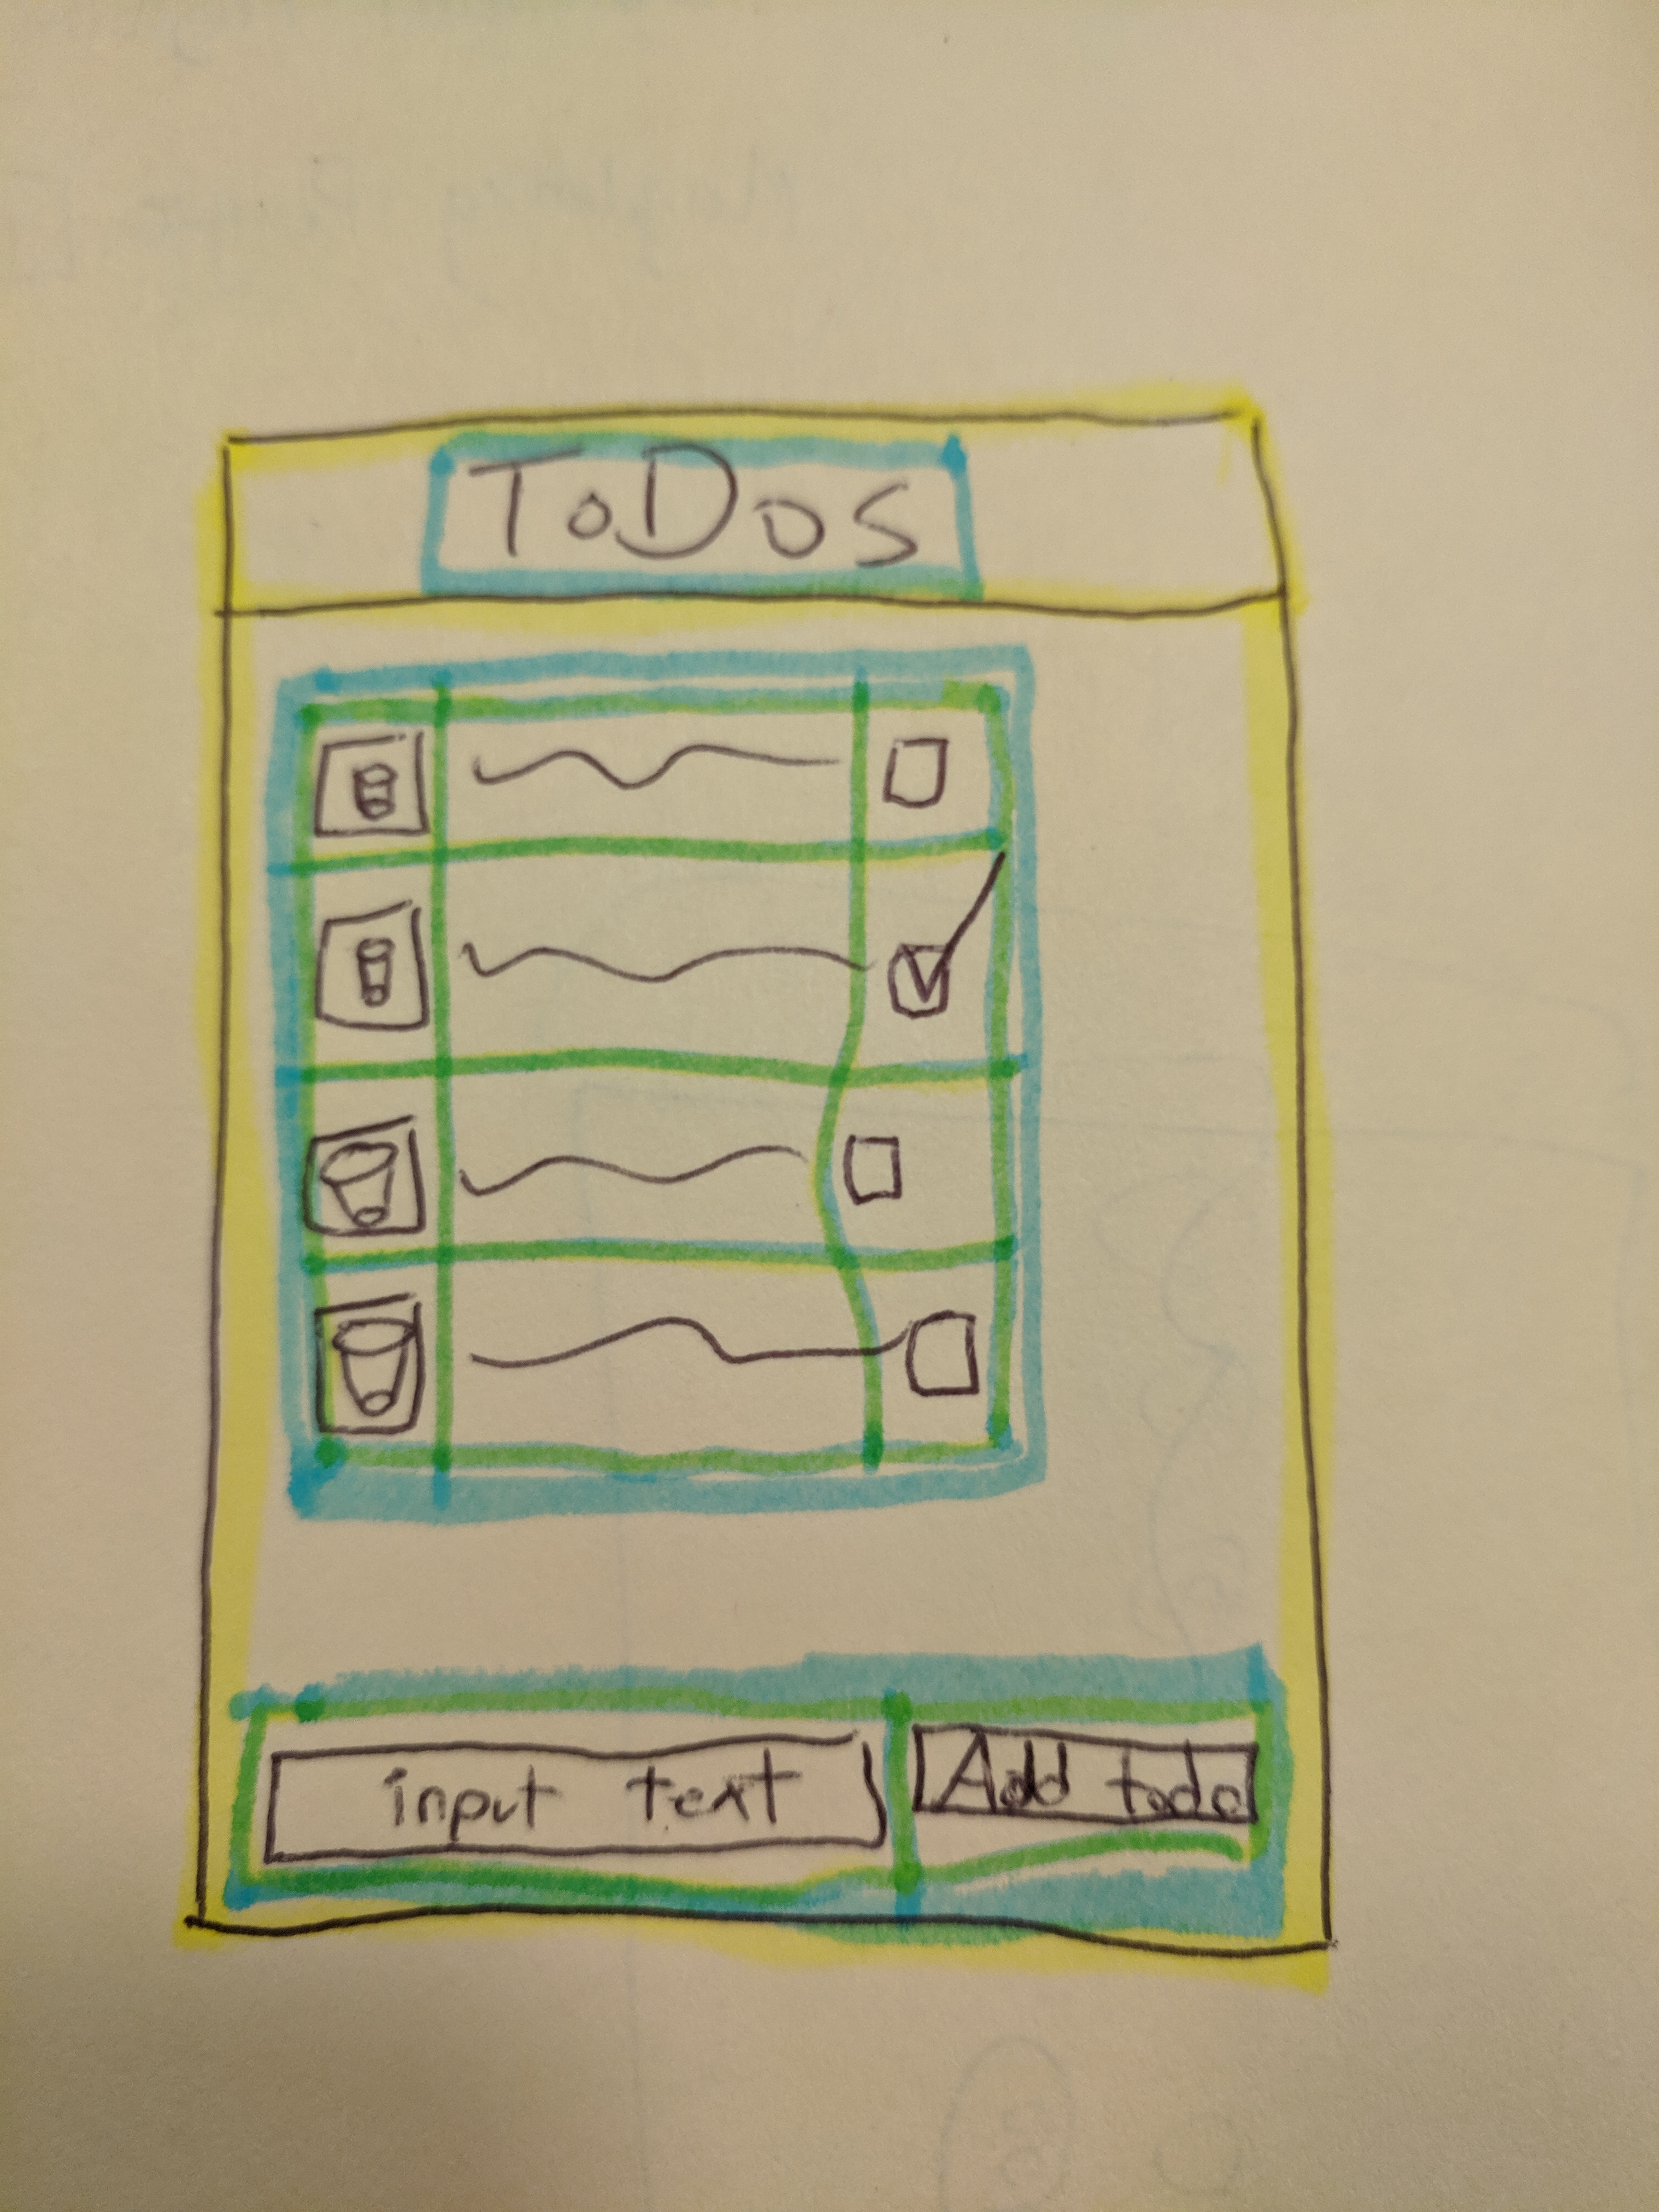 ToDos
input text
Add todo